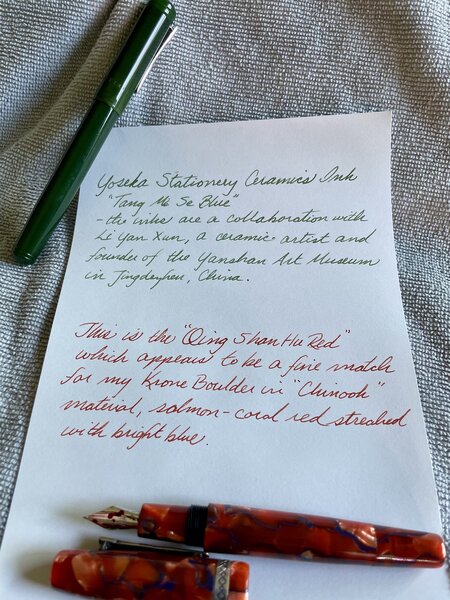 Yoseka Stationery Ceramics Ink
"Tang Mi Se Blue"
- the inks are a collaboration with
Li Yan Xun, a ceramic artist and
founder of the Yanshan Art Museum
in Jingdezhen, China.
This is the "Qing Shan Hu Red"
which appears to be a fine match
for my Krone Boulder in "Chinook"
material, salmon-coral red streaked
with bright blue.